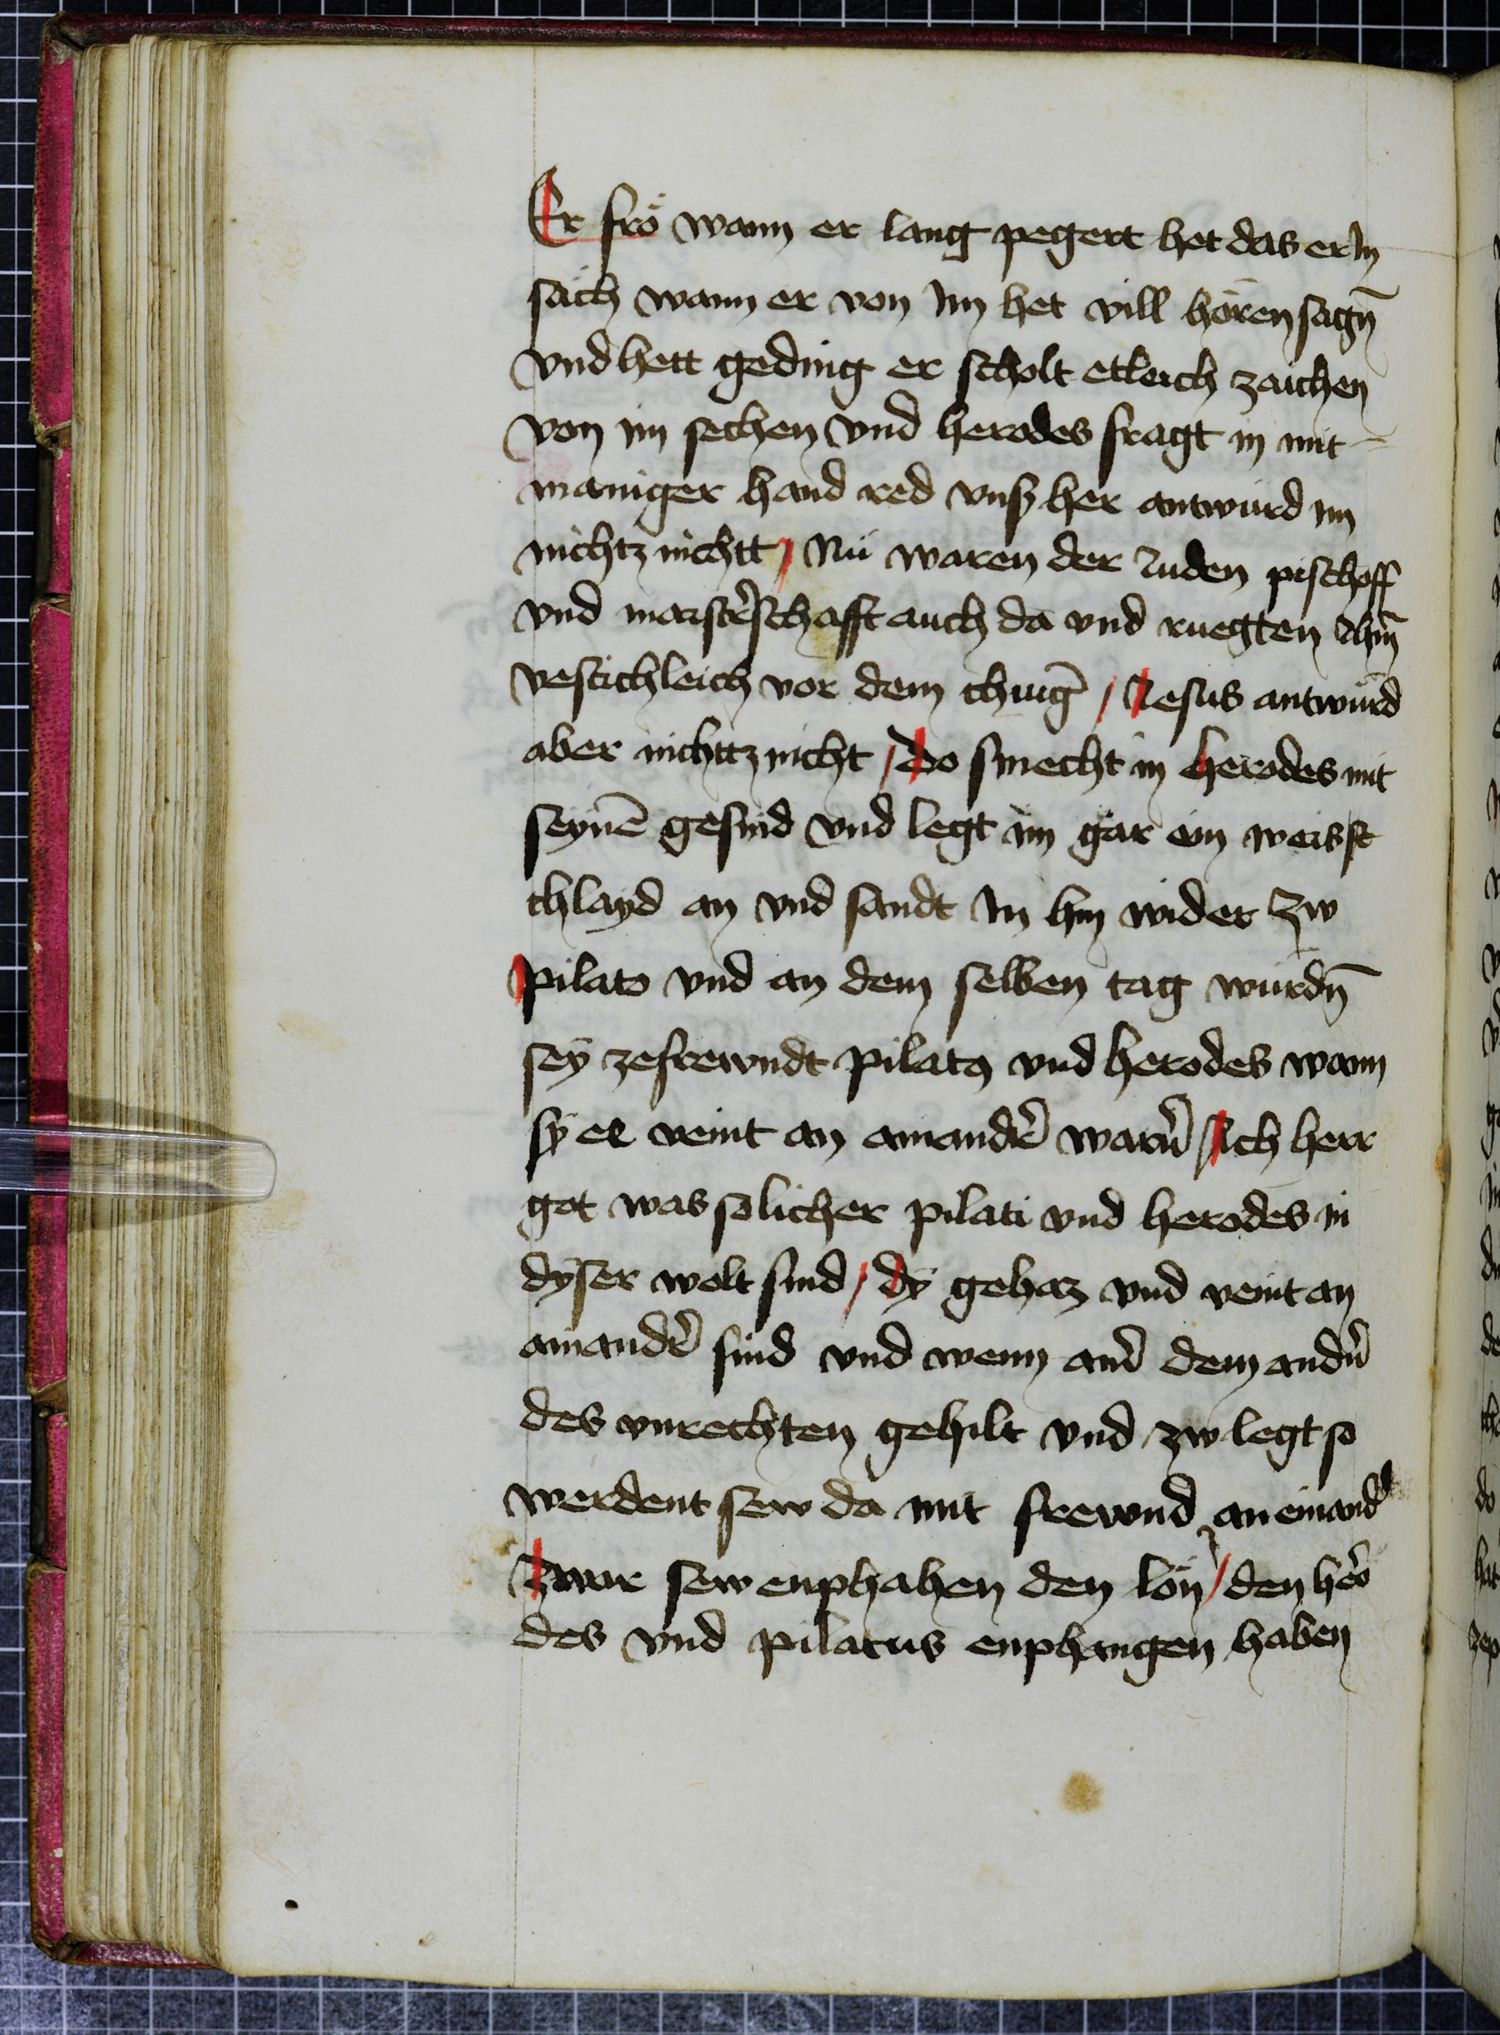 Er fro wann er lang pegert het das er In
säch wann er von Im het vill hören sagn̄
vnd hett geding er scholt etleich zaichen
von im sechen vnd herodes fragt in mit
maniger hand red vnsz her antwurd im
nichtz nichtt / Nu waren der Juden pischoff
vnd maistr̄schafft auch da vnd ruegten Jhm̄
vestichleich vor dem chuniḡ / Jesus antwurd
aber nichttz nicht / Do smecht in herodes mit
seynē gesind vnd legt im gar ein weisst
chlayd an vnd sandt In hin wider zw
pilato vnd an dem selben tag wurdn̄
sey zefrewndt pilatus vnd herodes wann
sy ee veint an ainandr̄ warn̄ / Ach herr
got was solicher pilati vnd herodes in
dyser welt sind / Dy gehaz vnd veint an
ainandr̄ sind vnd wenn ainr̄ dem andn̄
des vnrechten gehilt vnd zw legt so
werdent sew da mit frewnd an einand̄
Zwar sew enphahen den lon / den hero
des vnd pilatus enphangen haben